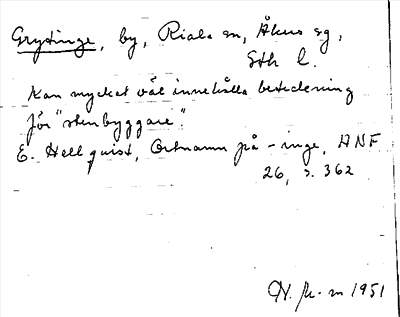 Grytinge, by, Riala sn, Åkers sg,
Sth l.
Kan mycket väl innehålla beteckning
för "stenbyggare".
E. Hellquist, Ortnamn på -inge, ANF
26, s. 362
1951